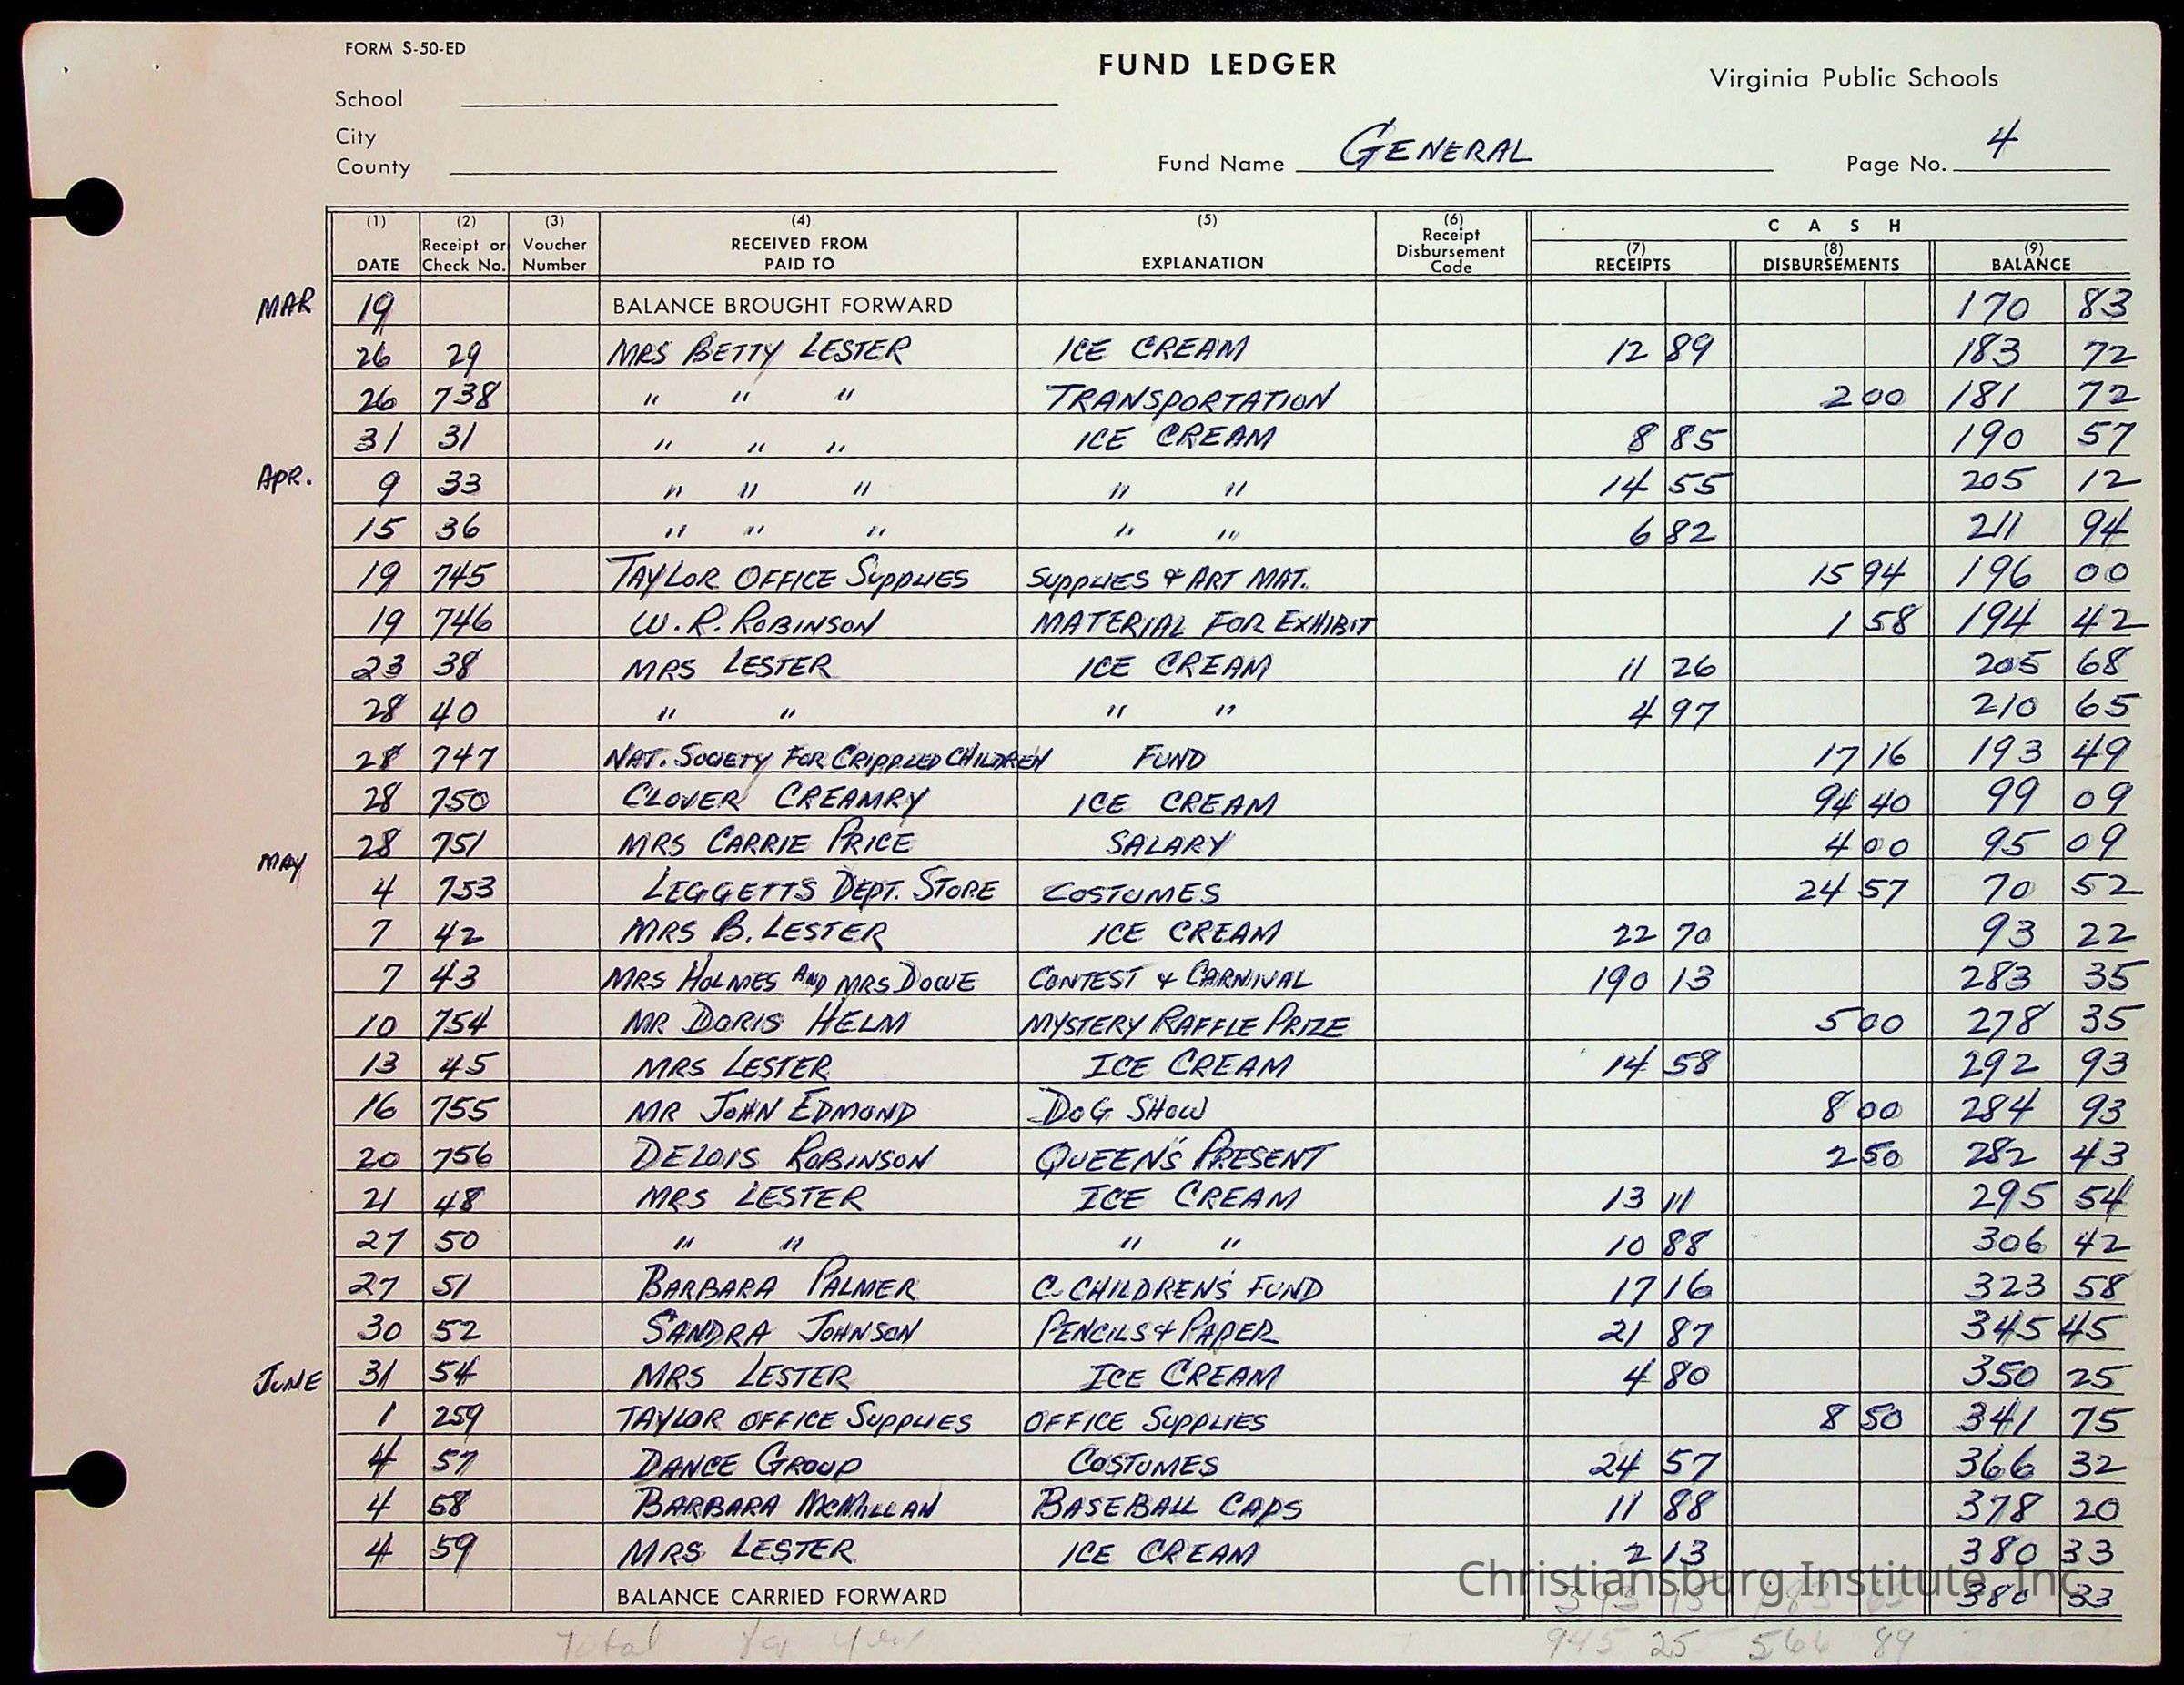 FORM S-50-ED
FUND LEDGER
Virginia Public Schools
School
City
County
Fund Name GENERAL
Page No. 4
(1) (2) (3) (4) (5) (6) C A S H
DATE Receipt or Check No. Voucher Number RECEIVED FROM PAID TO EXPLANATION Receipt Disbursement Code (7) RECEIPTS (8) DISBURSEMENTS (9) BALANCE
MAR 19 BALANCE BROUGHT FORWARD 170 83
26 29 MRS BETTY LESTER ICE CREAM 12 89 183 72
26 738 " " " TRANSPORTATION 2 00 181 72
31 31 " " " ICE CREAM 8 85 190 57
APR. 9 33 " " " " " 14 55 205 12
15 36 " " " " " 6 82 211 94
19 745 TAYLOR OFFICE SUPPLIES SUPPLIES & ART MAT. 15 94 196 00
19 746 W. R. ROBINSON MATERIAL FOR EXHIBIT 1 58 194 42
23 38 MRS LESTER ICE CREAM 11 26 205 68
28 40 " " " " 4 97 210 65
28 747 NAT. SOCIETY FOR CRIPPLED CHILDREN FUND 17 16 193 49
28 750 CLOVER CREAMRY ICE CREAM 94 40 99 09
28 751 MRS CARRIE PRICE SALARY 4 00 95 09
MAY 4 753 LEGGETTS DEPT. STORE COSTUMES 24 57 70 52
7 42 MRS B. LESTER ICE CREAM 22 70 93 22
7 43 MRS HOLMES AND MRS DOWE CONTEST & CARNIVAL 190 13 283 35
10 754 MR DORIS HELM MYSTERY RAFFLE PRIZE 5 00 278 35
13 45 MRS LESTER ICE CREAM 14 58 292 93
16 755 MR JOHN EDMOND DOG SHOW 8 00 284 93
20 756 DELOIS ROBINSON QUEEN'S PRESENT 2 50 282 43
21 48 MRS LESTER ICE CREAM 13 11 295 54
27 50 " " " " 10 88 306 42
27 51 BARBARA PALMER C. CHILDREN'S FUND 17 16 323 58
30 52 SANDRA JOHNSON PENCILS & PAPER 21 87 345 45
JUNE 31 54 MRS LESTER ICE CREAM 4 80 350 25
1 259 TAYLOR OFFICE SUPPLIES OFFICE SUPPLIES 8 50 341 75
4 57 DANCE GROUP COSTUMES 24 57 366 32
4 58 BARBARA MCMILLAN BASEBALL CAPS 11 88 378 20
4 59 MRS LESTER ICE CREAM 2 13 380 33
Christiansburg Institute, Inc
BALANCE CARRIED FORWARD 393 15 183 65 380 33
Total for year 945 25 566 89